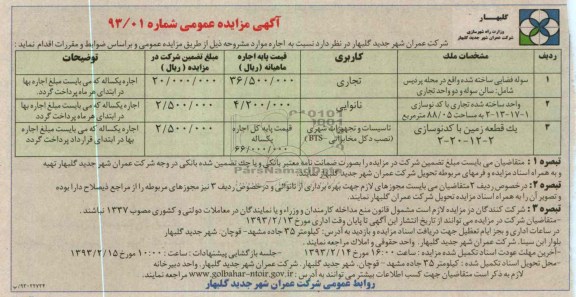 گلبهار
وزارت راه و شهرسازی
شرکت عمران شهر جدید گلبهار
آگهی مزایده عمومی شماره ۹۳/۰۱
شرکت عمران شهر جدید گلبهار در نظر دارد نسبت به اجاره موارد مشروحه ذیل از طریق مزایده عمومی و براساس ضوابط و مقررات اقدام نماید:
ردیف
مشخصات ملک
کاربری
قیمت پایه اجاره ماهیانه (ریال)
مبلغ تضمین شرکت در مزایده (ریال)
توضیحات
۱
سوله فضایی ساخته شده واقع در محله پردیس شامل: سالن سوله و دو واحد تجاری
تجاری
۳۶/۵۰۰/۰۰۰
۲۰/۰۰۰/۰۰۰
اجاره یکساله که می بایست مبلغ اجاره بها در ابتدای هر ماه پرداخت گردد.
۲
واحد ساخته شده تجاری با کد نوسازی ۱-۱۷-۱۳-۲ به مساحت ۸۸/۰۵ مترمربع
نانوایی
۴/۲۰۰/۰۰۰
۲/۵۰۰/۰۰۰
اجاره یکساله که می بایست مبلغ اجاره بها در ابتدای هر ماه پرداخت گردد.
۳
یک قطعه زمین با کد نوسازی ۲-۱۲-۲۰-۲
تاسیسات و تجهیزات شهری (نصب دکل مخابراتی -BTS)
قیمت پایه کل اجاره یکساله ۶۶/۰۰۰/۰۰۰
۲/۵۰۰/۰۰۰
اجاره یکساله که می بایست مبلغ اجاره بها در ابتدای قرارداد پرداخت گردد.
تبصره ۱: متقاضیان می بایست مبلغ تضمین شرکت در مزایده را بصورت ضمانت نامه معتبر بانکی و یا چک تضمین شده بانکی در وجه شرکت عمران شهر جدید گلبهار تهیه
و به همراه اسناد مزایده و فرمهای مربوطه تحویل شرکت عمران شهر جدید گلبهار نمایند.
تبصره ۲: درخصوص ردیف ۲ متقاضیان می بایست مجوزهای لازم جهت بهره برداری از نانوائی و درخصوص ردیف ۳ نیز مجوزهای مربوطه را از مراجع ذیصلاح دارا بوده
و تصویر آن را به همراه اسناد مزایده تحویل شرکت عمران شهر جدید گلبهار نمایند.
تبصره ۳: شرکت کنندگان در مزایده لازم است مشمول قانون منع مداخله کارمندان و وزراء و یا نمایندگان در معاملات دولتی و کشوری مصوب ۱۳۳۷ نباشند.
-متقاضیان شرکت در مزایده می توانند از تاریخ انتشار این آگهی تا پایان وقت اداری مورخ ۱۳۹۳/۲/۱۳
در ساعات اداری و بجز ایام تعطیل جهت دریافت اسناد مزایده و بازدید به آدرس: کیلومتر ۳۵ جاده مشهد- قوچان، شهر جدید گلبهار،
بلوار ابن سینا، شرکت عمران شهر جدید گلبهار، واحد حقوقی و املاک مراجعه نمایند.
-آخرین مهلت عودت اسناد تکمیل شده مزایده: ساعت ۱۶:۰۰ مورخ ۱۳۹۳/۲/۱۴ -جلسه بازگشایی پیشنهادات: ساعت ۱۰:۰۰ مورخ ۱۳۹۳/۲/۱۵
-محل تحویل اسناد تکمیل شده: کیلومتر ۳۵ جاده مشهد- قوچان، شهر جدید گلبهار، شرکت عمران شهر جدید گلبهار، واحد دبیرخانه
لازم به ذکر است متقاضیان جهت کسب اطلاعات بیشتر می توانند به آدرس: www.golbahar-ntoir.gov.ir مراجعه نمایند.
روابط عمومی شرکت عمران شهر جدید گلبهار